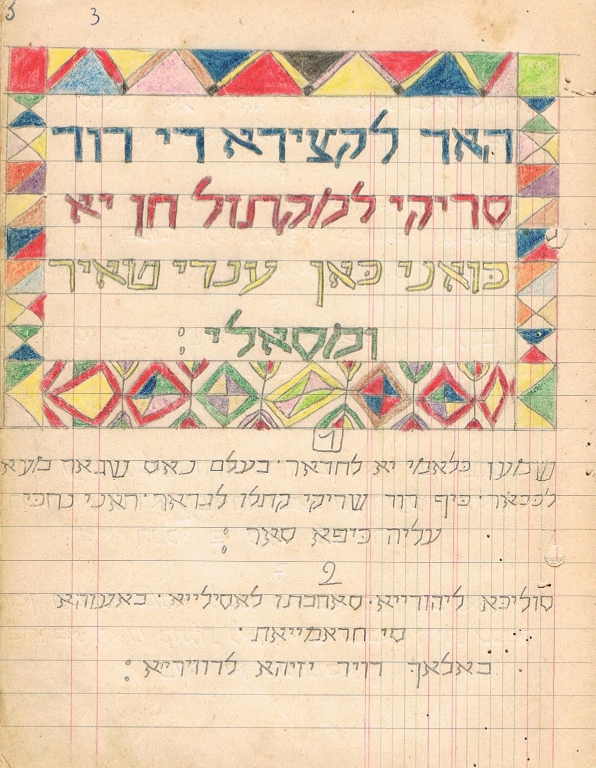 3
האד לקצידא די דוד
סריקי למקתול חן יא
כואני כאן ענדי טאיר
ומסאלי :
1
שמעו כלאמי יא לחדאר· בעלם
לכבאר· כיף דוד שריקי קתלו לגדאר· ראני נחכי
עליה כיפא סאר :
2
סוליכא ליהודייא· סאחבתו לאסילייא· באעוהא
סי חראמייאת·
באלאך דויר יזיהא לדויריא :